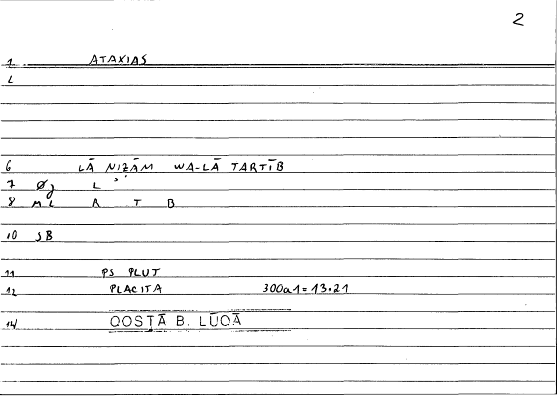 2
1 ATAXIAS
L
6 LĀ NIẒĀM WA-LĀ TARTĪB
7 Øj L
8 ML R T B
10 SB
11 PS PLUT
12 PLACITA 300a1=13.21
14 QOSṬĀ B. LŪQĀ